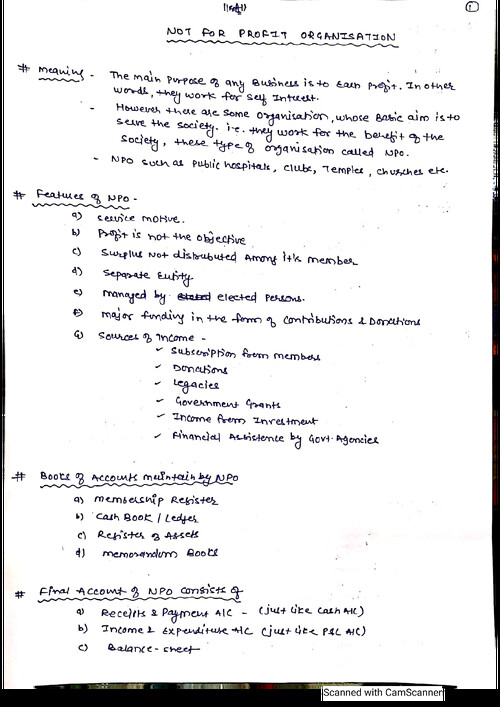 1
NOT FOR PROFIT ORGANISATION
# Meaning - The main purpose of any Business is to Earn Profit. In other
words, they work for self Interest.
- However there are some organisation, whose Basic aim is to
serve the society. i.e. they work for the benefit of the
society, these type of organisation called NPO.
- NPO such as Public hospitals, clubs, Temples, churches etc.
# Features of NPO -
a) service motive.
b) Profit is not the objective
c) Surplus Not distributed Among it's member
d) Separate Entity
e) managed by elected persons.
f) major funding in the form of contributions & Donations
G) Sources of Income -
✓ Subscription from members
✓ Donations
✓ Legacies
✓ Government Grants
✓ Income from Investment
✓ Financial Assistence by Govt. Agencies
# Books of Accounts maintain by NPO
a) membership Register
b) Cash Book / Ledger
c) Register of Assets
d) memorandum Books
# Final Account of NPO consists of
a) Receipts & Payment A/C - (just like cash A/c)
b) Income & Expenditure A/C (just like P&L A/C)
c) Balance-sheet
Scanned with CamScanner